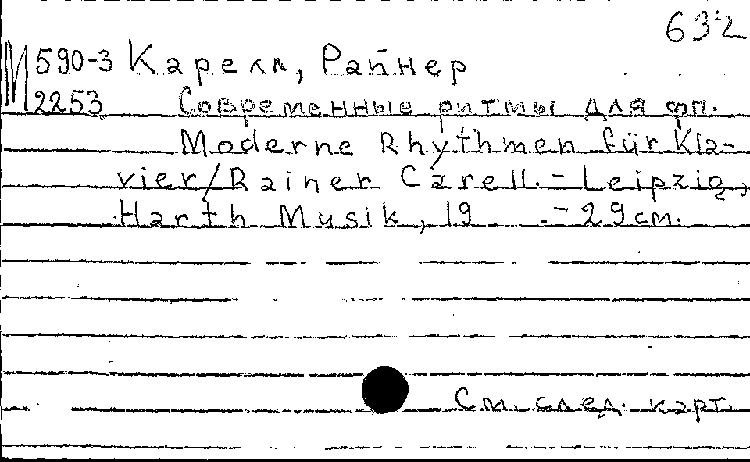 632
М 590-3 Карелл, Райнер
2253 Современные ритмы для фп.
Moderne Rhythmen für Kla-
vier/Rainer Carell. - Leipzig,
Harth Musik, 19 . - 29 см.
См. след. карт.